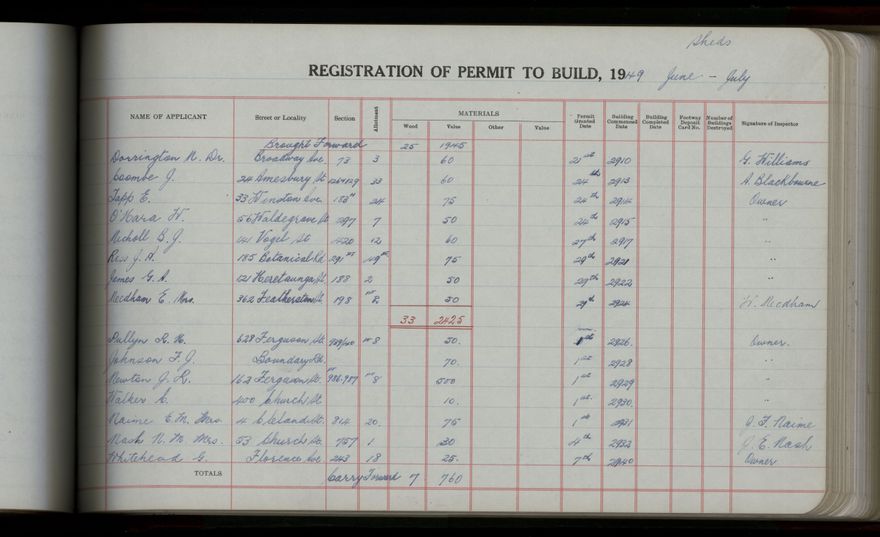 Sheds
REGISTRATION OF PERMIT TO BUILD, 1949 June - July
NAME OF APPLICANT Street or Locality Section Allotment MATERIALS Permit Granted Date Building Commenced Date Building Completed Date Footway Deposit Card No. Number of Buildings Destroyed Signature of Inspector
Wood Value Other Value
Brought Forward 25 1945
Dorrington N. Dr. Broadway Ave 73 3 60 21st 2910 G. Williams
Coombe J. 24 Amesbury St 33 60 24th 2913 A. Blackbourne
Tapp E. 33 Winston Ave. 183 24 75 24th 2914 Owner
O'Hara W. 56 Waldegrave St 297 7 50 24th 2915 "
Nicholl B. J. 41 Vogel St 1420 12 60 27th 2917 "
J. A. 185 Botanical Rd 291 75 29th 2921 "
James G. A. 121 Heretaunga St 188 2 50 29th 2922 "
Needham E. Mrs. 362 Featherston St 198 2 50 2924 W. Needham
33 2425
Pullyn R. N. 628 Ferguson St. 8 50. 1st 2926. Owner.
Johnson F. J. Boundary Rd. 70. 1st 2928 "
Newton J. R. 162 Ferguson St. 986.987 8 500 1st 2929 "
Walker C. 400 Church St 10. 1st 2930. "
Naime E. M. Mrs 4 Cleland St. 814 20. 75 1st 2931 J. F. Naime
Nash N. M. Mrs. 53 Church St. 757 1 30 4th 2933 J. E. Nash
Whitehead G. Florence Ave 243 18 25. 7th 2940 Owner
TOTALS Carry Forward 7 760